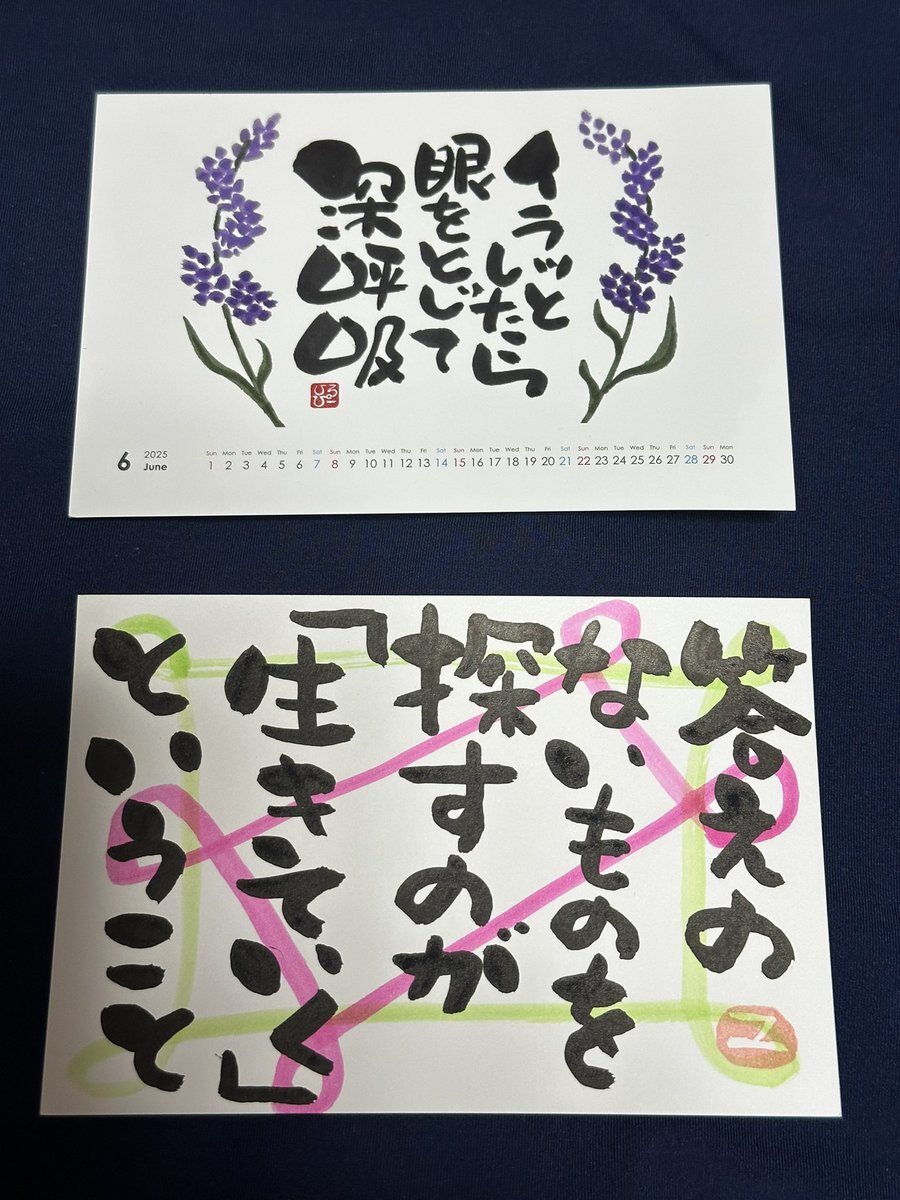 イラッと
したら
眼をとじて
深呼吸
6
2025
June
Sun Mon Tue Wed Thu Fri Sat Sun Mon Tue Wed Thu Fri Sat Sun Mon Tue Wed Thu Fri Sat Sun Mon Tue Wed Thu Fri Sat Sun Mon
1 2 3 4 5 6 7 8 9 10 11 12 13 14 15 16 17 18 19 20 21 22 23 24 25 26 27 28 29 30
答えの
ないものを
探すのが
「生きていく」
ということ